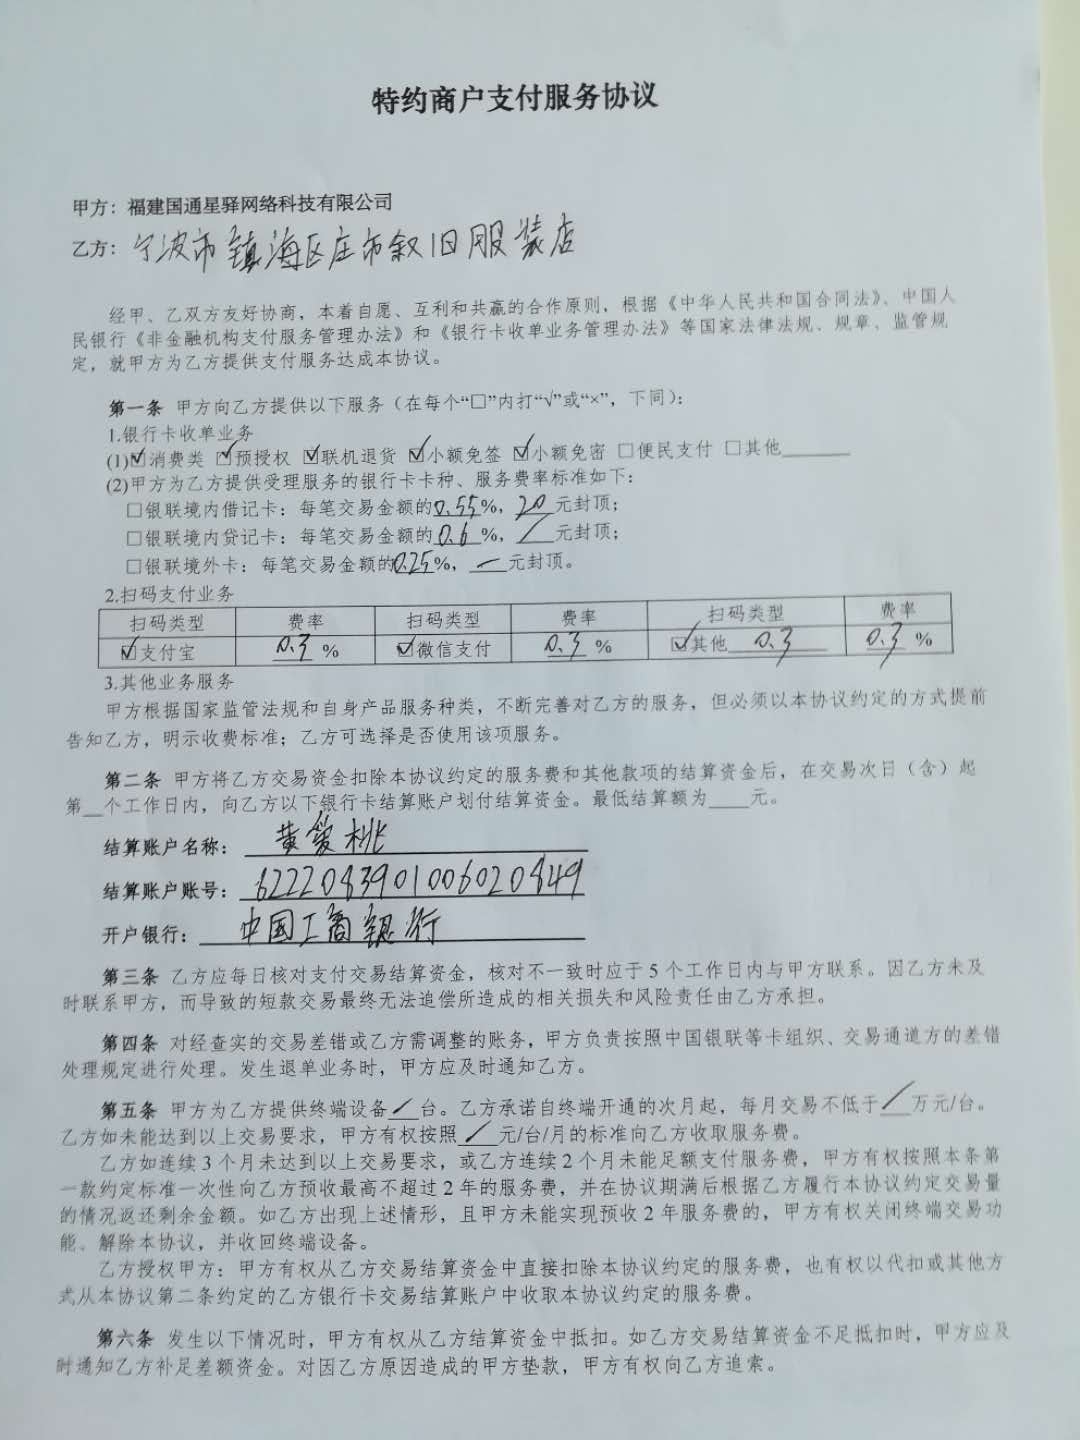 特约商户支付服务协议
甲方：福建国通星驿网络科技有限公司
乙方：宁波市镇海区庄市叙旧服装店
经甲、乙双方友好协商，本着自愿、互利和共赢的合作原则，根据《中华人民共和国合同法》、中国人
民银行《非金融机构支付服务管理办法》和《银行卡收单业务管理办法》等国家法律法规、规章、监管规
定，就甲方为乙方提供支付服务达成本协议。
第一条 甲方向乙方提供以下服务（在每个“□”内打“√”或“×”，下同）：
1.银行卡收单业务
(1)☑消费类 ☑预授权 ☑联机退货 ☑小额免签 ☑小额免密 □便民支付 □其他____
(2)甲方为乙方提供受理服务的银行卡卡种、服务费率标准如下：
□银联境内借记卡：每笔交易金额的0.55%，20元封顶；
□银联境内贷记卡：每笔交易金额的0.6%，/元封顶；
□银联境外卡：每笔交易金额的0.25%，—元封顶。
2.扫码支付业务
扫码类型 费率 扫码类型 费率 扫码类型 费率
☑支付宝 0.3% ☑微信支付 0.3% ☑其他 0.3 0.3%
3.其他业务服务
甲方根据国家监管法规和自身产品服务种类，不断完善对乙方的服务，但必须以本协议约定的方式提前
告知乙方，明示收费标准；乙方可选择是否使用该项服务。
第二条 甲方将乙方交易资金扣除本协议约定的服务费和其他款项的结算资金后，在交易次日（含）起
第__个工作日内，向乙方以下银行卡结算账户划付结算资金。最低结算额为____元。
结算账户名称：黄爱桃
结算账户账号：6222083901006020849
开户银行：中国工商银行
第三条 乙方应每日核对支付交易结算资金，核对不一致时应于5个工作日内与甲方联系。因乙方未及
时联系甲方，而导致的短款交易最终无法追偿所造成的相关损失和风险责任由乙方承担。
第四条 对经查实的交易差错或乙方需调整的账务，甲方负责按照中国银联等卡组织、交易通道方的差错
处理规定进行处理。发生退单业务时，甲方应及时通知乙方。
第五条 甲方为乙方提供终端设备/台。乙方承诺自终端开通的次月起，每月交易不低于/万元/台。
乙方如未能达到以上交易要求，甲方有权按照/元/台/月的标准向乙方收取服务费。
乙方如连续3个月未达到以上交易要求，或乙方连续2个月未能足额支付服务费，甲方有权按照本条第
一款约定标准一次性向乙方预收最高不超过2年的服务费，并在协议期满后根据乙方履行本协议约定交易量
的情况返还剩余金额。如乙方出现上述情形，且甲方未能实现预收2年服务费的，甲方有权关闭终端交易功
能、解除本协议，并收回终端设备。
乙方授权甲方：甲方有权从乙方交易结算资金中直接扣除本协议约定的服务费，也有权以代扣或其他方
式从本协议第二条约定的乙方银行卡交易结算账户中收取本协议约定的服务费。
第六条 发生以下情况时，甲方有权从乙方结算资金中抵扣。如乙方交易结算资金不足抵扣时，甲方应及
时通知乙方补足差额资金。对因乙方原因造成的甲方垫款，甲方有权向乙方追索。